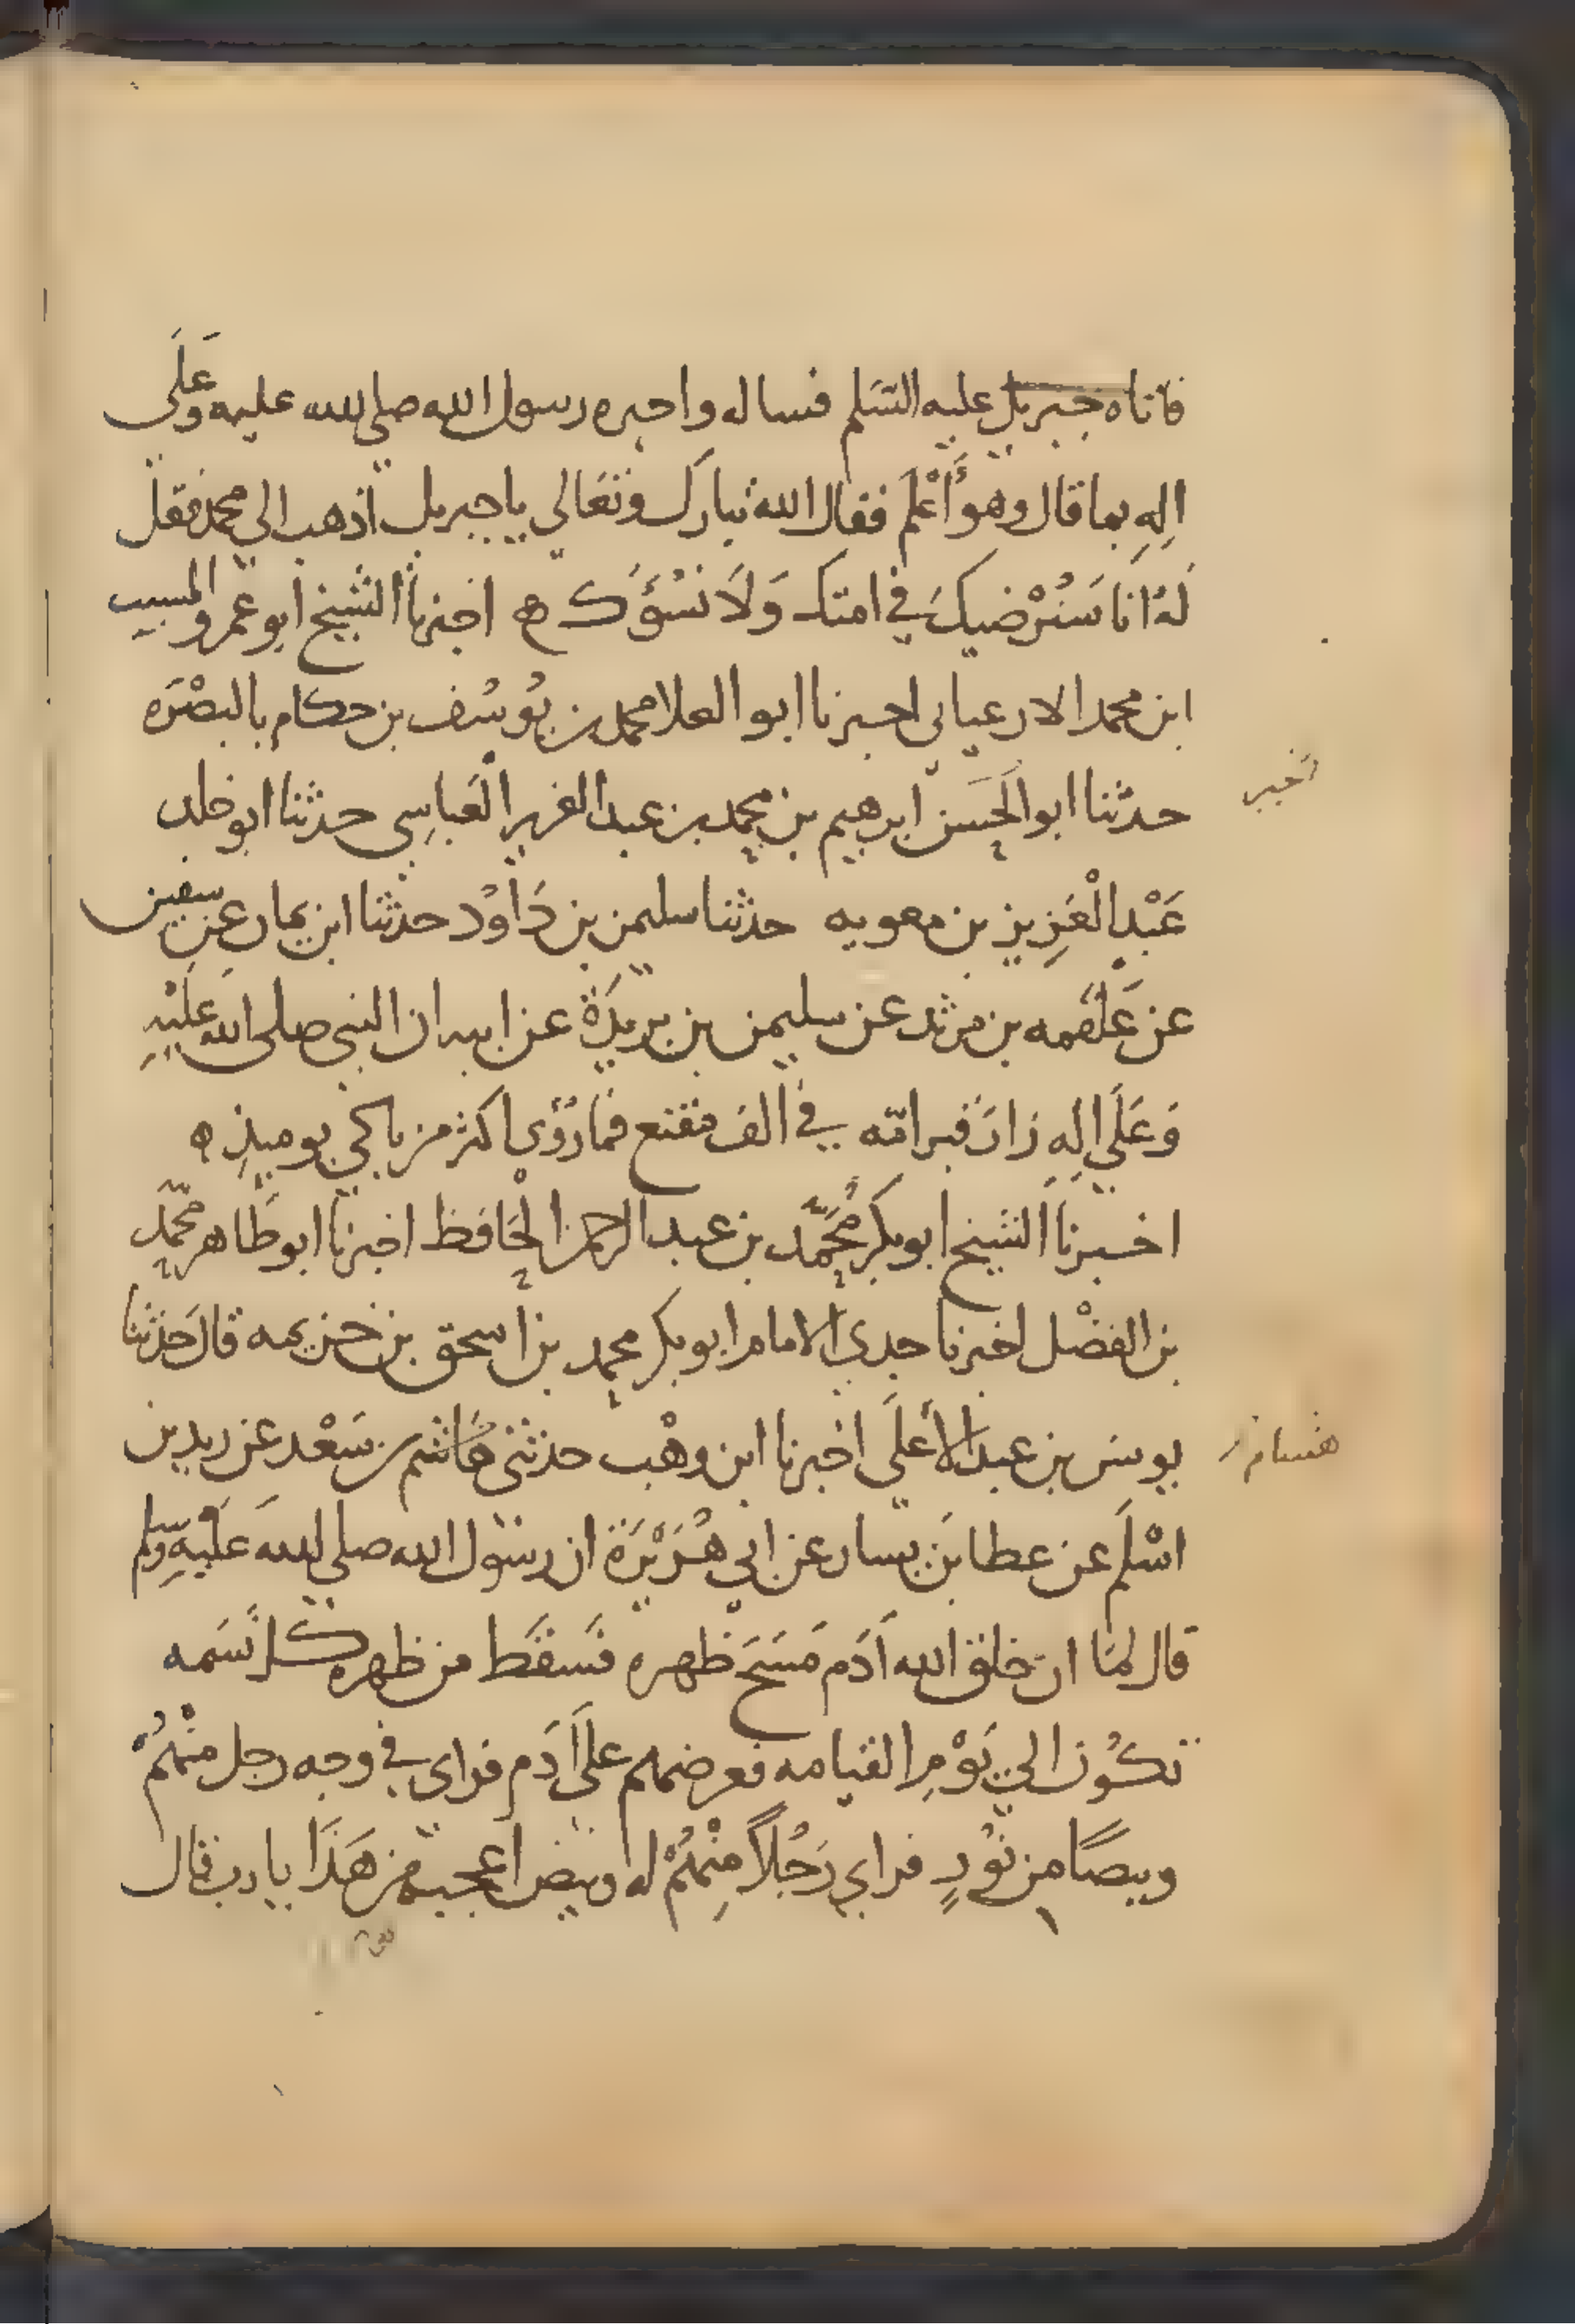 فاتاه جبريل عليه السَّلم فساله واخبره رسول الله صلى الله عليه وعَلَى
الِهِ بما قال وهو أَعْلم فقال الله تبارك وتعَالى يا جبريل اذهب الى محمد فقل
لَهُ انا سَنُرْضيكَ في امتك وَلَا نَسُؤَك ه اخبرنا الشيخ ابو عمرو المسيب
ابن محمد الارعيانى اخبرنا ابو العلا محمد بن يُوسُف بن حكام بالبصْرَه
حدثنا ابو الحَسَن ابرهيم بن محمد بن عبد العزيز العَباسِي حدثنا ابو خلد
عَبْد الْعَزِيز بن معويه حدثنا سليمن بن دَاوُد حدثنا ابن يمان عن سفين
عن عَلْقَمه بن مرثد عن سليمن بن بريدَة عن ابيه ان النبى صلى الله عَلَيْهِ
وَعَلَى الِهِ زَارَ قبر امّه في الف مقنع فمَا رُؤي اكثر من باكي يوميذٍ ه
اخبرنا الشيخ ابو بكر مُحَمَّد بن عبد الرحمن الْحَافظ اخبرنا ابو طَاهر محمَّد
بن الفضْل اخبرنا جدي الامام ابو بكر محمد بن اسحق بن خزيمه قال حَدثنا
يونس بن عبد الأعلَى اخبرنا ابن وهْب حدثنى هَاشم بن سَعْد عن زيد بن
اسْلَم عن عطا بَن يسار عن ابي هُرَيْرَة ان رسُول الله صلى الله عَلَيْهِ وسلم
قال لمّا ان خلق الله آدَم مَسَحَ ظهره فسَقَط من ظهره كل نَسَمه
تكُون الى يَوْمِ القيامه فعرضهم علَى آدَم فراى في وجه رجل منْهُمْ
وبيصًا من نُورٍ فراى رَجُلاً مِنْهُمْ له وبيص اعجبه من هَذَا يا رب قال
هشام